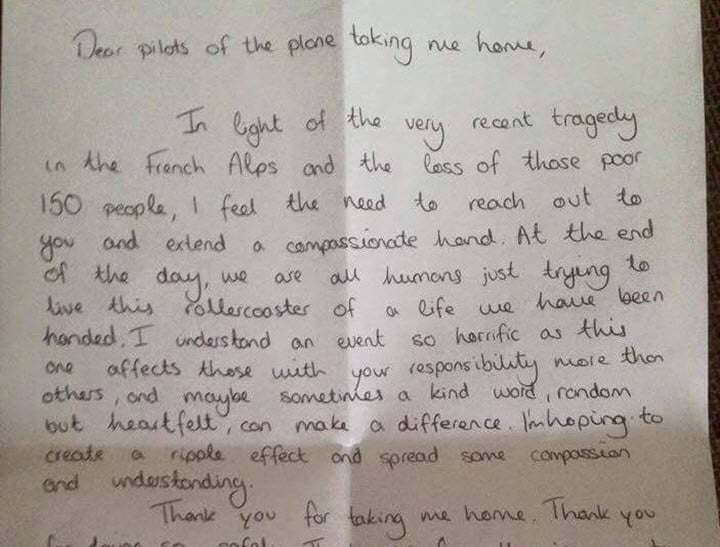 Dear pilots of the plane taking me home,
In light of the very recent tragedy
in the French Alps and the loss of those poor
150 people, I feel the need to reach out to
you and extend a compassionate hand. At the end
of the day, we are all humans just trying to
live this rollercoaster of a life we have been
handed. I understand an event so horrific as this
one affects those with your responsibility more than
others, and maybe sometimes a kind word, random
but heartfelt, can make a difference. I'm hoping to
create a ripple effect and spread some compassion
and understanding.
Thank you for taking me home. Thank you